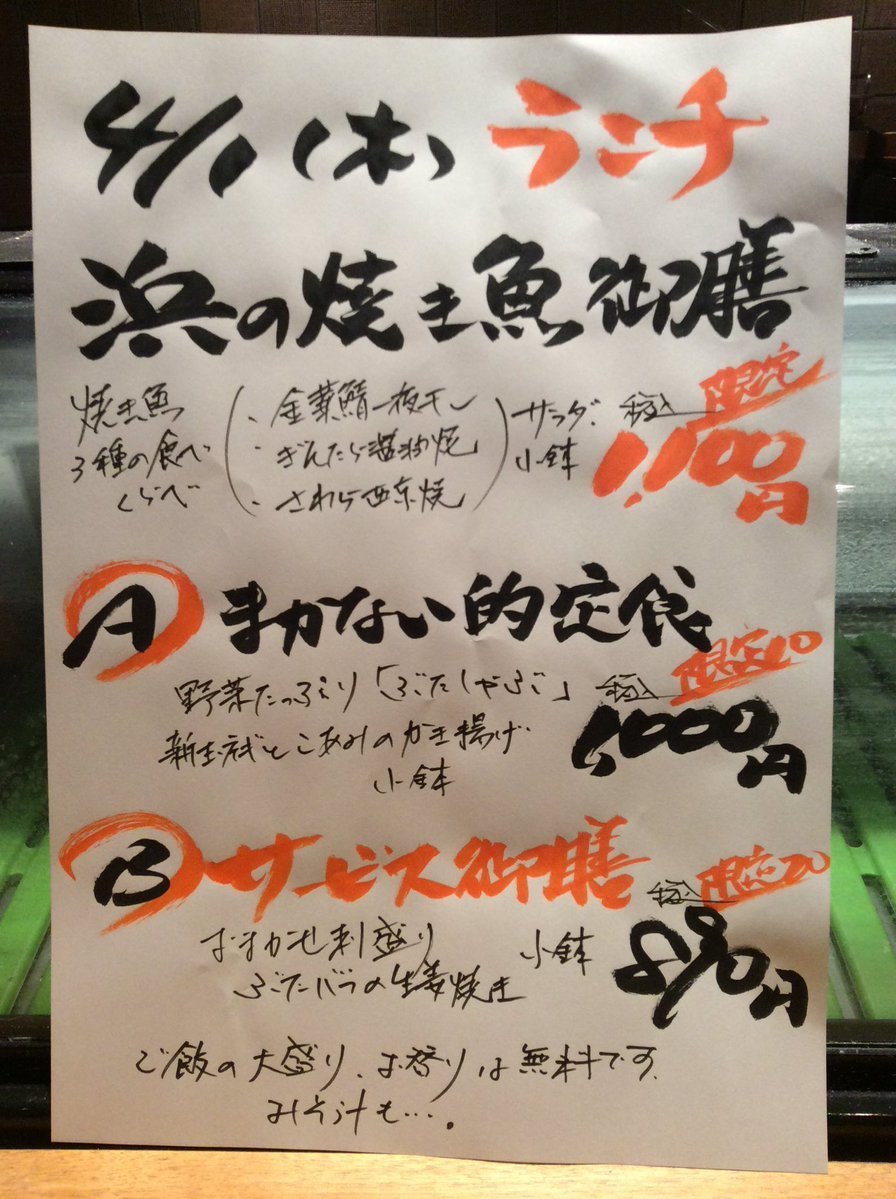 4/1(木) ランチ
浜の焼き魚御膳
焼き魚
3種の食べ
くらべ
・金華鯖一夜干し
・ぎんだら粕焼
・さわら西京焼
サラダ、
小鉢
税込
限定
1,100円
A まかない的定食
野菜たっぷり「ぶたしゃぶ」
新玉ねぎとこあみのかき揚げ
小鉢
税込
限定10
1,000円
B サービス御膳
おまかせ刺盛り
ぶたバラの生姜焼き
小鉢
税込
限定20
890円
ご飯の大盛り、お替りは無料です。
みそ汁も…。